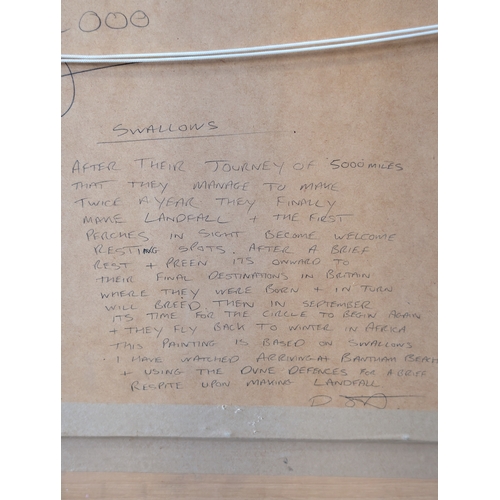 000
SWALLOWS
AFTER THEIR JOURNEY OF 5000 MILES
THAT THEY MANAGE TO MAKE
TWICE A YEAR THEY FINALLY
MAKE LANDFALL + THE FIRST
PERCHES IN SIGHT BECOME WELCOME
RESTING SPOTS. AFTER A BRIEF
REST + PREEN ITS ONWARD TO
THEIR FINAL DESTINATIONS IN BRITAIN
WHERE THEY WERE BORN + IN TURN
WILL BREED. THEN IN SEPTEMBER
ITS TIME FOR THE CIRCLE TO BEGIN AGAIN
+ THEY FLY BACK TO WINTER IN AFRICA
THIS PAINTING IS BASED ON SWALLOWS
I HAVE WATCHED ARRIVING AT BANTHAM BEACH
+ USING THE DUNE DEFENCES FOR A BRIEF
RESPITE UPON MAKING LANDFALL